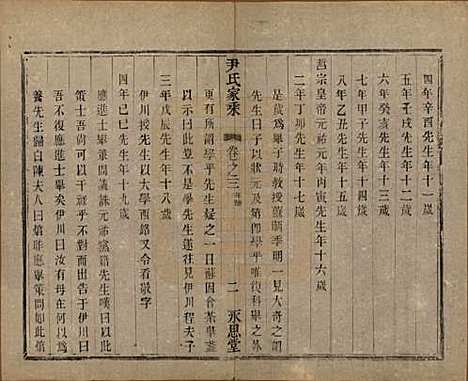 四年辛酉先生年十一歲
五年壬戌先生年十二歲
六年癸亥先生年十三歲
七年甲子先生年十四歲
八年乙丑先生年十五歲
哲宗皇帝元祐元年丙寅先生年十六歲
二年丁卯先生年十七歲
是歲為舉子時教授蘇昞季明一見大奇之謂
先生曰子以狀元及第即學乎唯復科舉之外
尹氏家乘
卷之三
年譜
二
永思堂
更有所謂學乎先生疑之一日蘇因會茶舉盞
以示曰此豈不是學先生遂往見伊川程夫子
三年戊辰先生年十八歲
伊川授先生以大學西銘又看敬字
四年己巳先生年十九歲
應進士舉策問議誅元祐黨籍先生嘆曰以此
策士吾尚可以干祿乎不對而出告於伊川曰
吾不復應進士舉矣伊川曰汝有母在何不以
養先生歸白陳夫人曰焞雖應舉策問如此